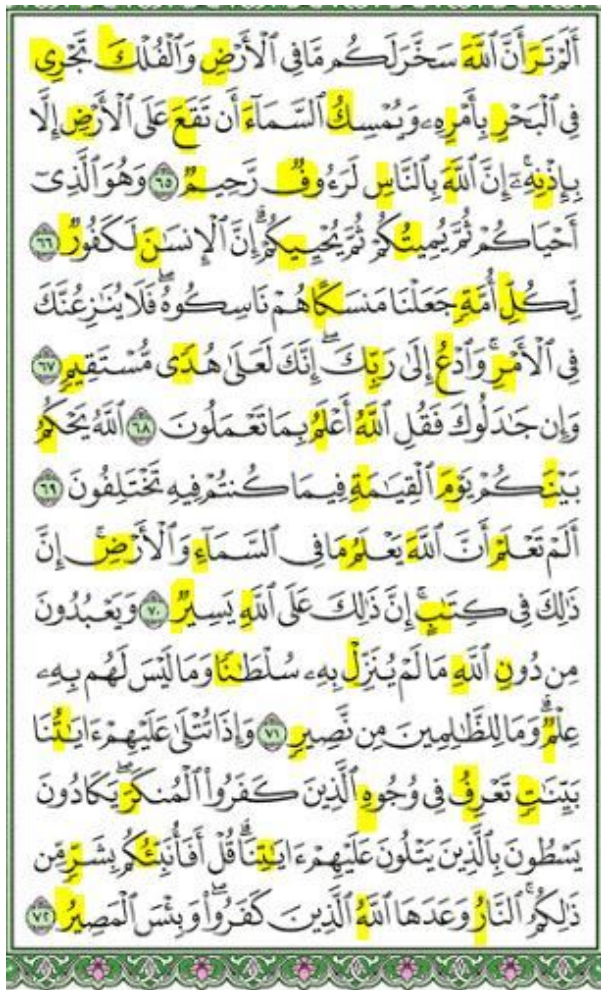 أَلَمۡ تَرَ أَنَّ ٱللَّهَ سَخَّرَ لَكُم مَّا فِى ٱلۡأَرۡضِ وَٱلۡفُلۡكَ تَجۡرِى
فِى ٱلۡبَحۡرِ بِأَمۡرِهِۦ وَيُمۡسِكُ ٱلسَّمَآءَ أَن تَقَعَ عَلَى ٱلۡأَرۡضِ إِلَّا
بِإِذۡنِهِۦٓۚ إِنَّ ٱللَّهَ بِٱلنَّاسِ لَرَءُوفٌ رَّحِيمٌ ٦٥ وَهُوَ ٱلَّذِىٓ
أَحۡيَاكُمۡ ثُمَّ يُمِيتُكُمۡ ثُمَّ يُحۡيِيكُمۡۗ إِنَّ ٱلۡإِنسَٰنَ لَكَفُورٌ ٦٦
لِّكُلِّ أُمَّةٍ جَعَلۡنَا مَنسَكًا هُمۡ نَاسِكُوهُۖ فَلَا يُنَٰزِعُنَّكَ
فِى ٱلۡأَمۡرِۚ وَٱدۡعُ إِلَىٰ رَبِّكَۖ إِنَّكَ لَعَلَىٰ هُدًى مُّسۡتَقِيمٍ ٦٧
وَإِن جَٰدَلُوكَ فَقُلِ ٱللَّهُ أَعۡلَمُ بِمَا تَعۡمَلُونَ ٦٨ ٱللَّهُ يَحۡكُمُ
بَيۡنَكُمۡ يَوۡمَ ٱلۡقِيَٰمَةِ فِيمَا كُنتُمۡ فِيهِ تَخۡتَلِفُونَ ٦٩
أَلَمۡ تَعۡلَمۡ أَنَّ ٱللَّهَ يَعۡلَمُ مَا فِى ٱلسَّمَآءِ وَٱلۡأَرۡضِۚ إِنَّ
ذَٰلِكَ فِى كِتَٰبٍۚ إِنَّ ذَٰلِكَ عَلَى ٱللَّهِ يَسِيرٌ ٧٠ وَيَعۡبُدُونَ
مِن دُونِ ٱللَّهِ مَا لَمۡ يُنَزِّلۡ بِهِۦ سُلۡطَٰنًا وَمَا لَيۡسَ لَهُم بِهِۦ
عِلۡمٌۗ وَمَا لِلظَّٰلِمِينَ مِن نَّصِيرٍ ٧١ وَإِذَا تُتۡلَىٰ عَلَيۡهِمۡ ءَايَٰتُنَا
بَيِّنَٰتٍ تَعۡرِفُ فِى وُجُوهِ ٱلَّذِينَ كَفَرُواْ ٱلۡمُنكَرَۖ يَكَادُونَ
يَسۡطُونَ بِٱلَّذِينَ يَتۡلُونَ عَلَيۡهِمۡ ءَايَٰتِنَاۗ قُلۡ أَفَأُنَبِّئُكُم بِشَرٍّ مِّن
ذَٰلِكُمُۚ ٱلنَّارُ وَعَدَهَا ٱللَّهُ ٱلَّذِينَ كَفَرُواْۖ وَبِئۡسَ ٱلۡمَصِيرُ ٧٢